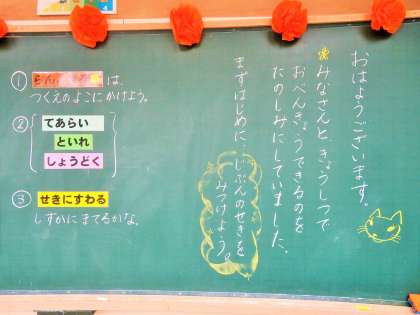 おはようございます。
みなさんと、きょうしつで
おべんきょうできるのを
たのしみにしていました。
まずはじめに…じぶんのせきを
みつけよう。
① らん は、
つくえのよこにかけよう。
②
てあらい
といれ
しょうどく
③ せきにすわる
しずかにまてるかな。